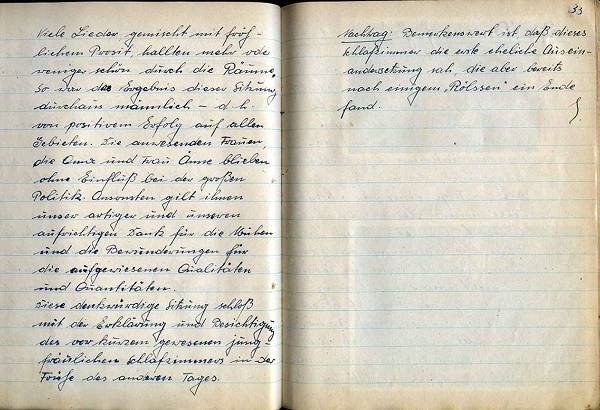 Viele Lieder gemischt mit fröh-
lichem Prosit, hallten mehr oder
weniger schön durch die Räume,
so war das Ergebnis dieser Sitzung
durchaus männlich – d. h.
von positivem Erfolg auf allen
Gebieten. Die anwesenden Frauen,
die Oma und Frau Anne blieben
ohne Einfluß bei der großen
Politik. Ansonsten gilt ihnen
unser artiger und unseren
aufrichtigen Dank für die Mühen
und die Bewunderungen für
die aufgewiesenen Qualitäten
und Quantitäten.
Diese denkwürdige Sitzung schloß
mit der Erklärung und Besichtigung
des vor kurzem gewesenen jung-
fräulichen Schlafzimmers in der
Frühe des anderen Tages.
33
Nachtrag: Bemerkenswert ist, daß dieses
Schlafzimmer die erste eheliche Ausein-
andersetzung sah, die aber bereits
nach einigem ein Ende
fand.